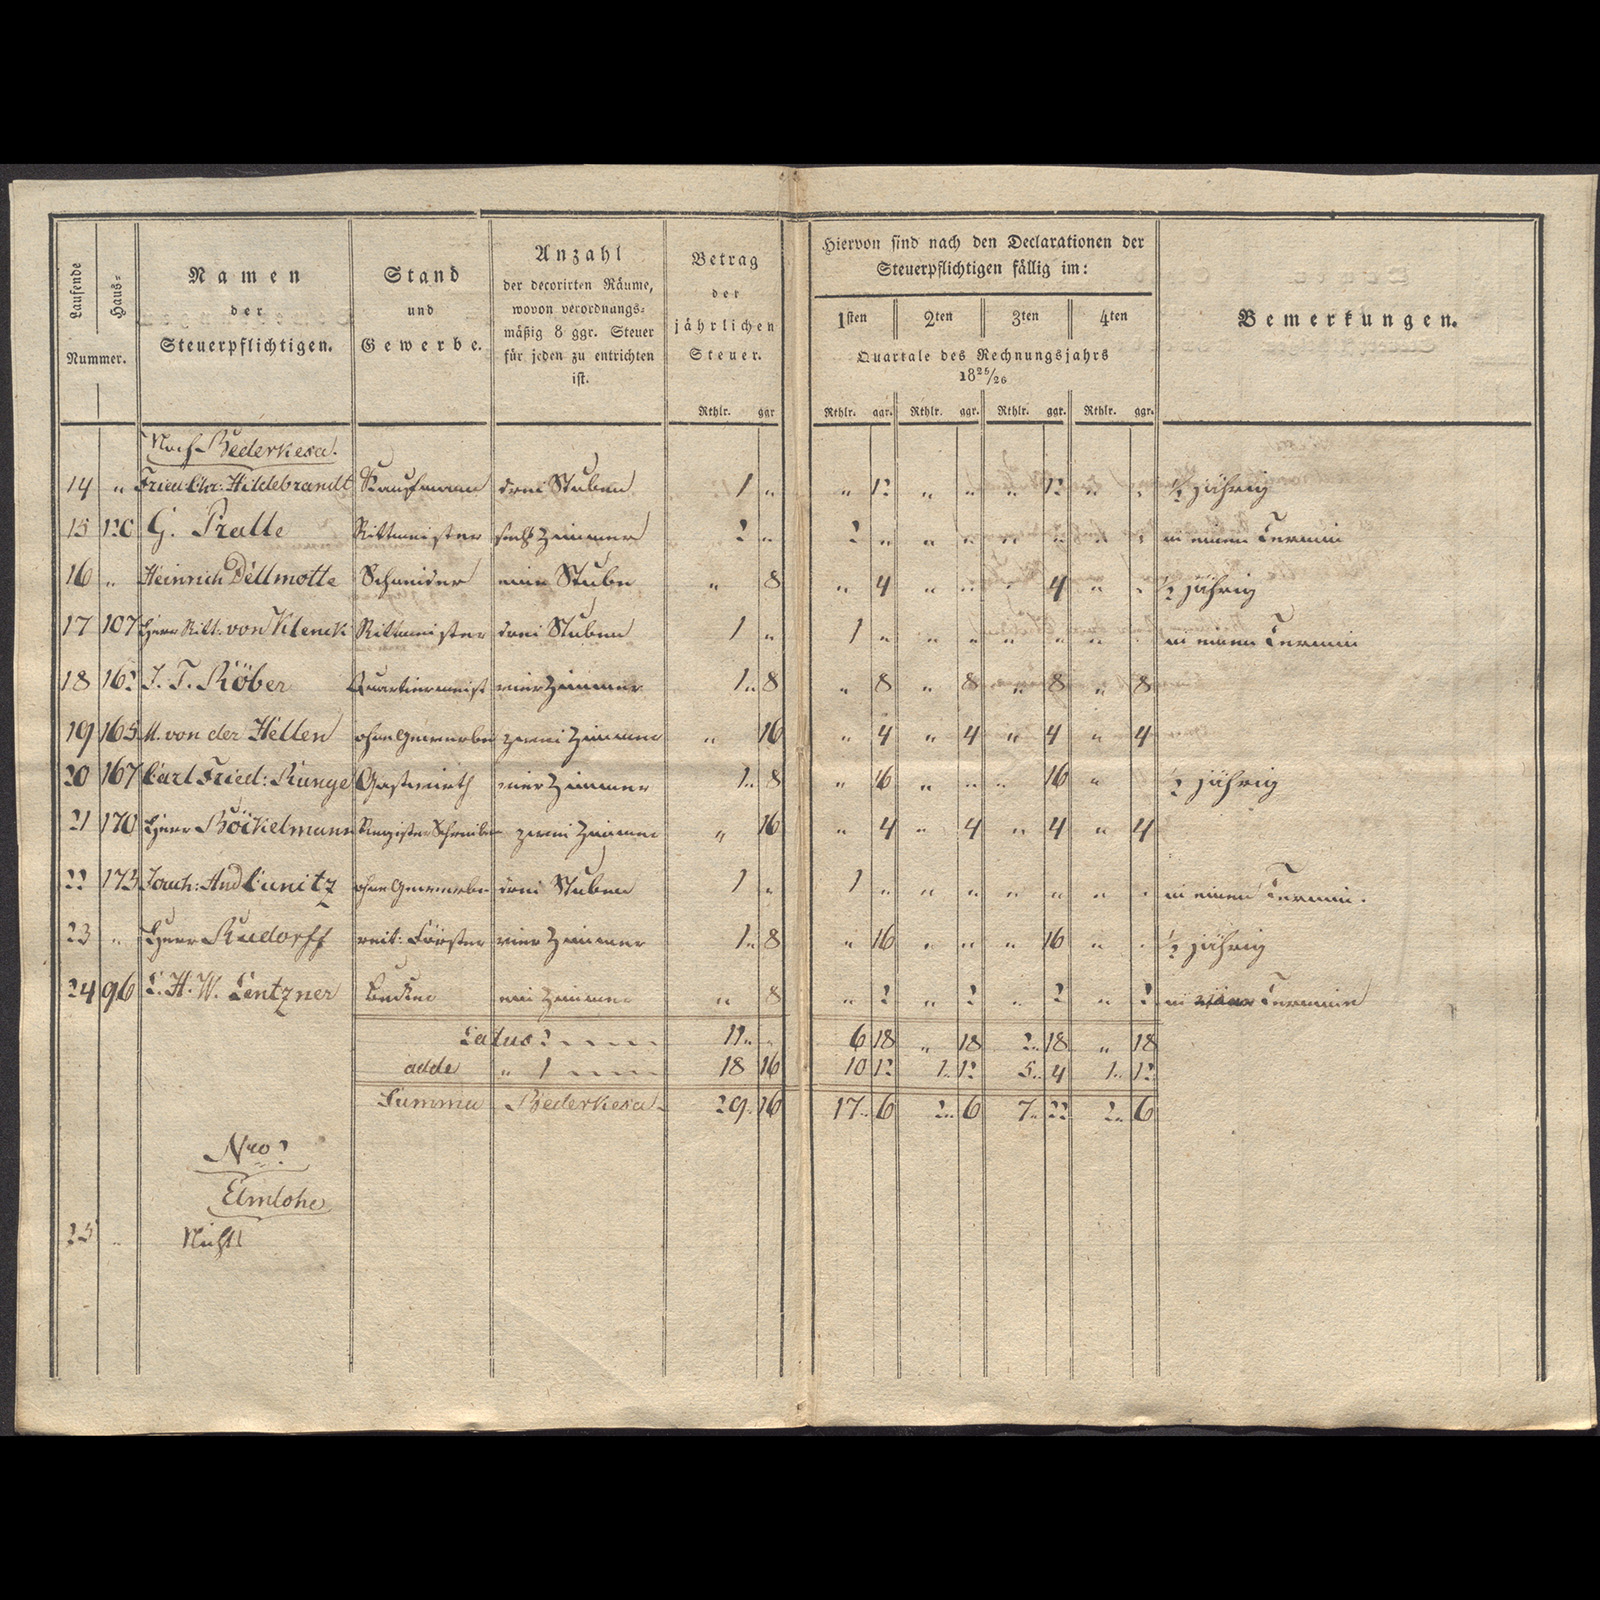 Laufende
Haus-
Nummer.
Namen
der
Steuerpflichtigen.
Stand
und
Gewerbe.
Anzahl
der decorirten Räume,
wovon verordnungs-
mäßig 8 ggr. Steuer
für jeden zu entrichten
ist.
Betrag
der
jährlichen
Steuer.
Rthlr. ggr
Hiervon sind nach den Declarationen der
Steuerpflichtigen fällig im:
1sten 2ten 3ten 4ten
Quartale des Rechnungsjahrs
1825/26
Rthlr. ggr. Rthlr. ggr. Rthlr. ggr. Rthlr. ggr.
Bemerkungen.
Noch Bederkesa.
14 " Fried: Chr: Hildebrandt Kaufmann drei Stuben 1 " " 12 " " " 12 " " ½ jährig
15 120 G. Pralle Rittmeister sechs Zimmer 2 " 2 " " " " " " " in einen Termin
16 " Heinrich Dellmotte Schneider eine Stube " 8 " 4 " " " 4 " " ½ jährig
17 107 Herr Ritt: von Klenck Rittmeister drei Stuben 1 " 1 " " " " " " " in einen Termin
18 162 J. T. Röber Quartiermeist vier Zimmer 1 " 8 " 8 " 8 " 8 " 8
19 165 M. von der Hellen ohne Gewerbe zwei Zimmer " 16 " 4 " 4 " 4 " 4
20 167 Carl Fried: Runge Gastwirth vier Zimmer 1 " 8 " 16 " " " 16 " ½ jährig
21 170 Herr Böckelmann Register Schreiber zwei Zimmer " 16 " 4 " 4 " 4 " 4
22 173 Joach: And Cunitz ohne Gewerbe drei Stuben 1 " 1 " " " " " " " in einen Termin.
23 " Herr Rudorff reit: Förster vier Zimmer 1 " 8 " 16 " " " 16 " " ½ jährig
24 96 L. H. W. Lentzner ein Zimmer " 8 " 2 " 2 " 2 " 2 in Termin
Latus 2 11 " " 6 18 " 18 2 " 18 " 18
adde " 1 18 16 10 12 1 " 12 5 " 4 1 " 12
Summa Bederkesa 29 " 16 17 " 6 2 " 6 7 " 22 2 " 6
Nro 2
Elmlohe
25 " Nichts